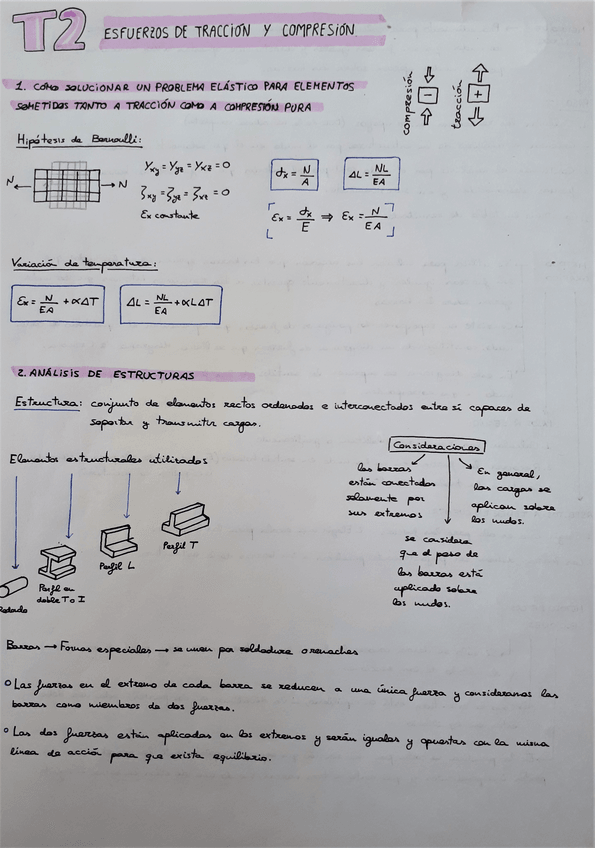 T2 ESFUERZOS DE TRACCIÓN Y COMPRESIÓN
1. CÓMO SOLUCIONAR UN PROBLEMA ELÁSTICO PARA ELEMENTOS
SOMETIDOS TANTO A TRACCIÓN COMO A COMPRESIÓN PURA
compresión
-
tracción
+
Hipótesis de Bernoulli:
N
N
γxy = γyz = γxz = 0
ζxy = ζyz = ζxz = 0
Ex constante
σx = N/A
ΔL = NL/EA
εx = σx/E ⇒ εx = N/EA
Variación de temperatura:
εx = N/EA + αΔT
ΔL = NL/EA + αLΔT
2. ANÁLISIS DE ESTRUCTURAS
Estructura: conjunto de elementos rectos ordenados e interconectados entre sí capaces de
soportar y transmitir cargas.
Elementos estructurales utilizados
Redondo
Perfil en
doble T o I
Perfil L
Perfil T
Consideraciones
las barras
están conectadas
solamente por
sus extremos
se considera
que el peso de
las barras está
aplicado sobre
los nudos.
En general,
las cargas se
aplican sobre
los nudos.
Barras → Formas especiales → se unen por soldadura o remaches
Las fuerzas en el extremo de cada barra se reducen a una única fuerza y consideramos las
barras como miembros de dos fuerzas.
Las dos fuerzas están aplicadas en los extremos y serán iguales y opuestas con la misma
línea de acción para que exista equilibrio.